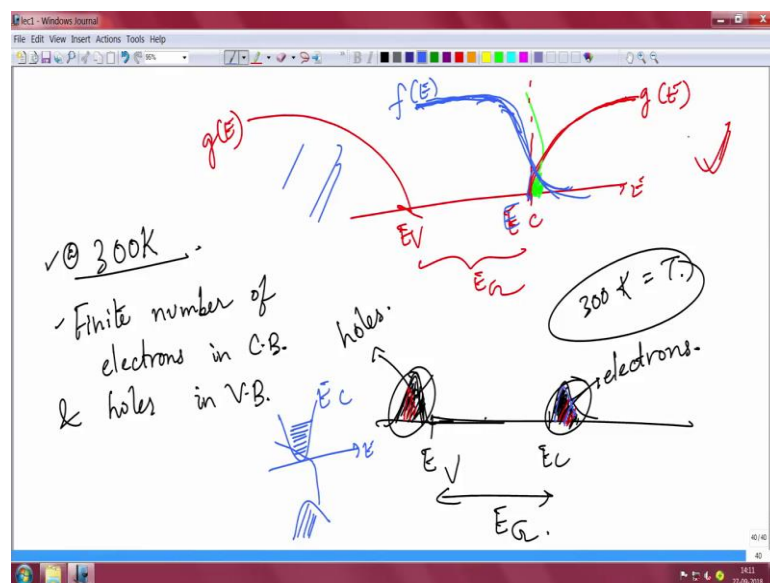 lec1 - Windows Journal
File Edit View Insert Actions Tools Help
96%
B I
f(E)
g(E)
g(E)
E
EV
E C
EG
✓@ 300K
300 K = T.
- Finite number of
electrons in C.B.
& holes in V.B.
holes.
electrons.
E C
E
E V
EC
EG.
40/40
40
14:11
27-09-2018